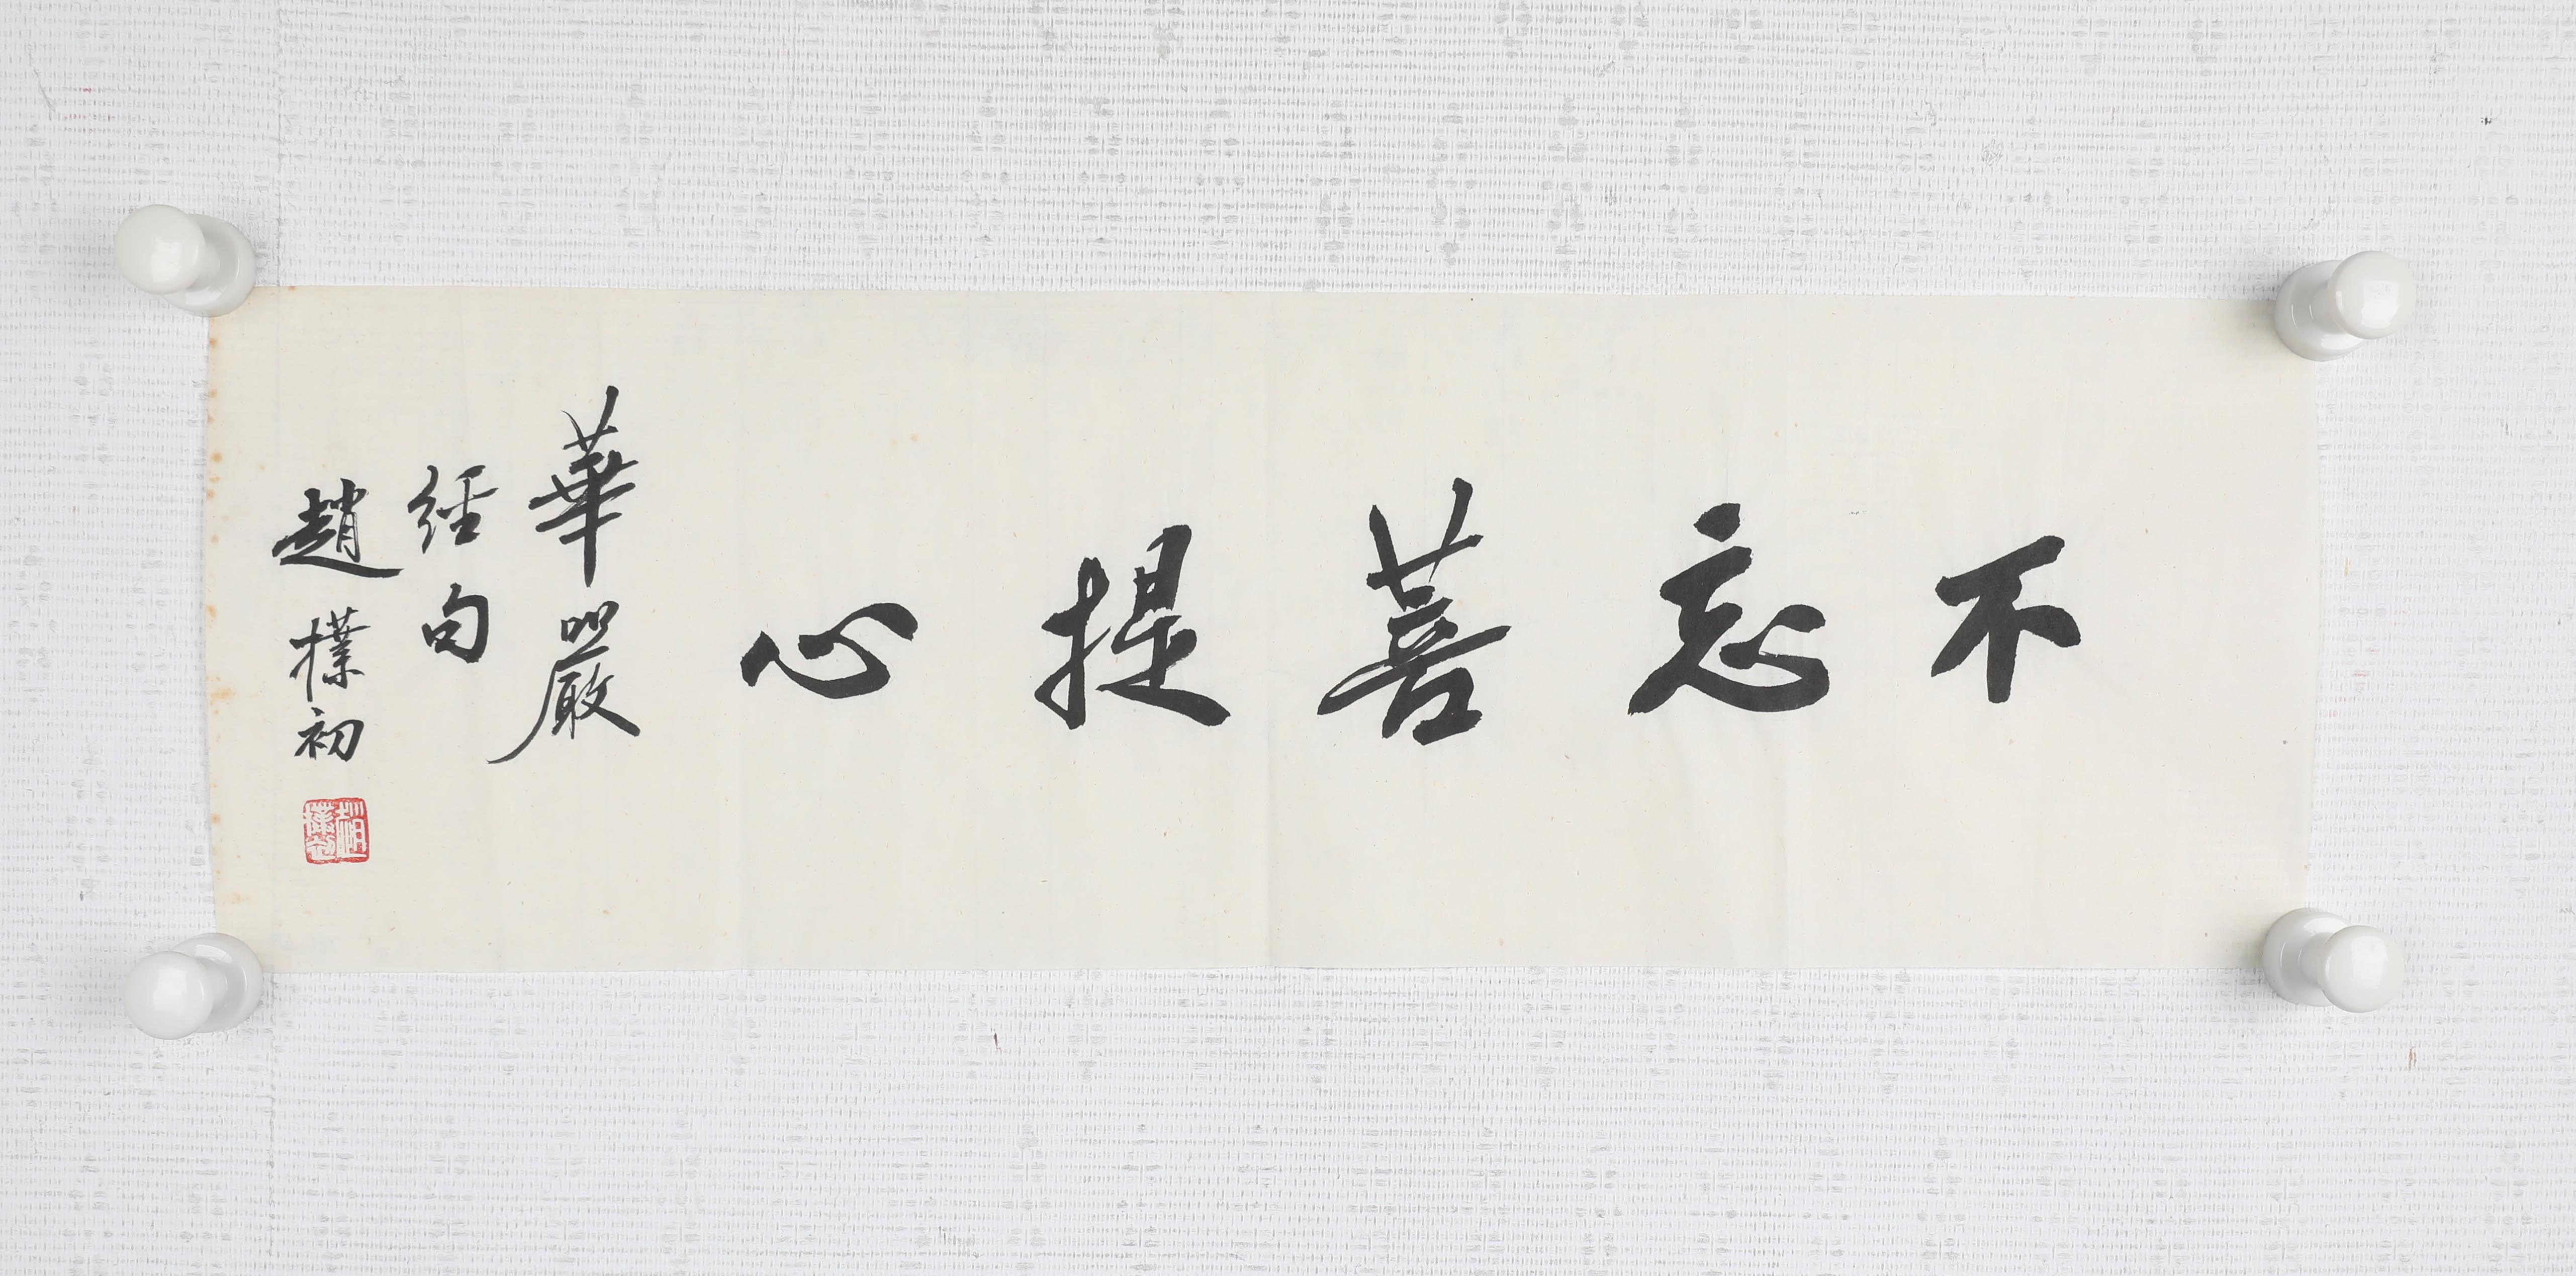 不忘菩提心
華嚴
經句
趙樸初
趙樸初